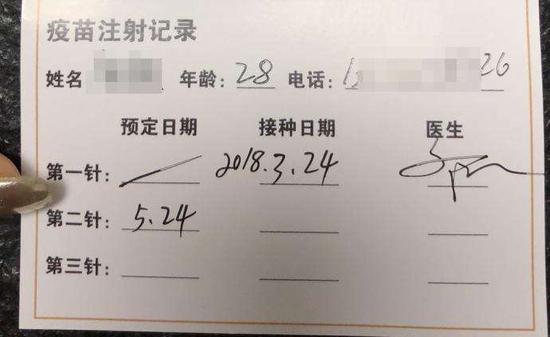 疫苗注射记录
姓名 年龄: 28 电话: 1 26
预定日期 接种日期 医生
第一针: 2018.3.24
第二针: 5.24
第三针: